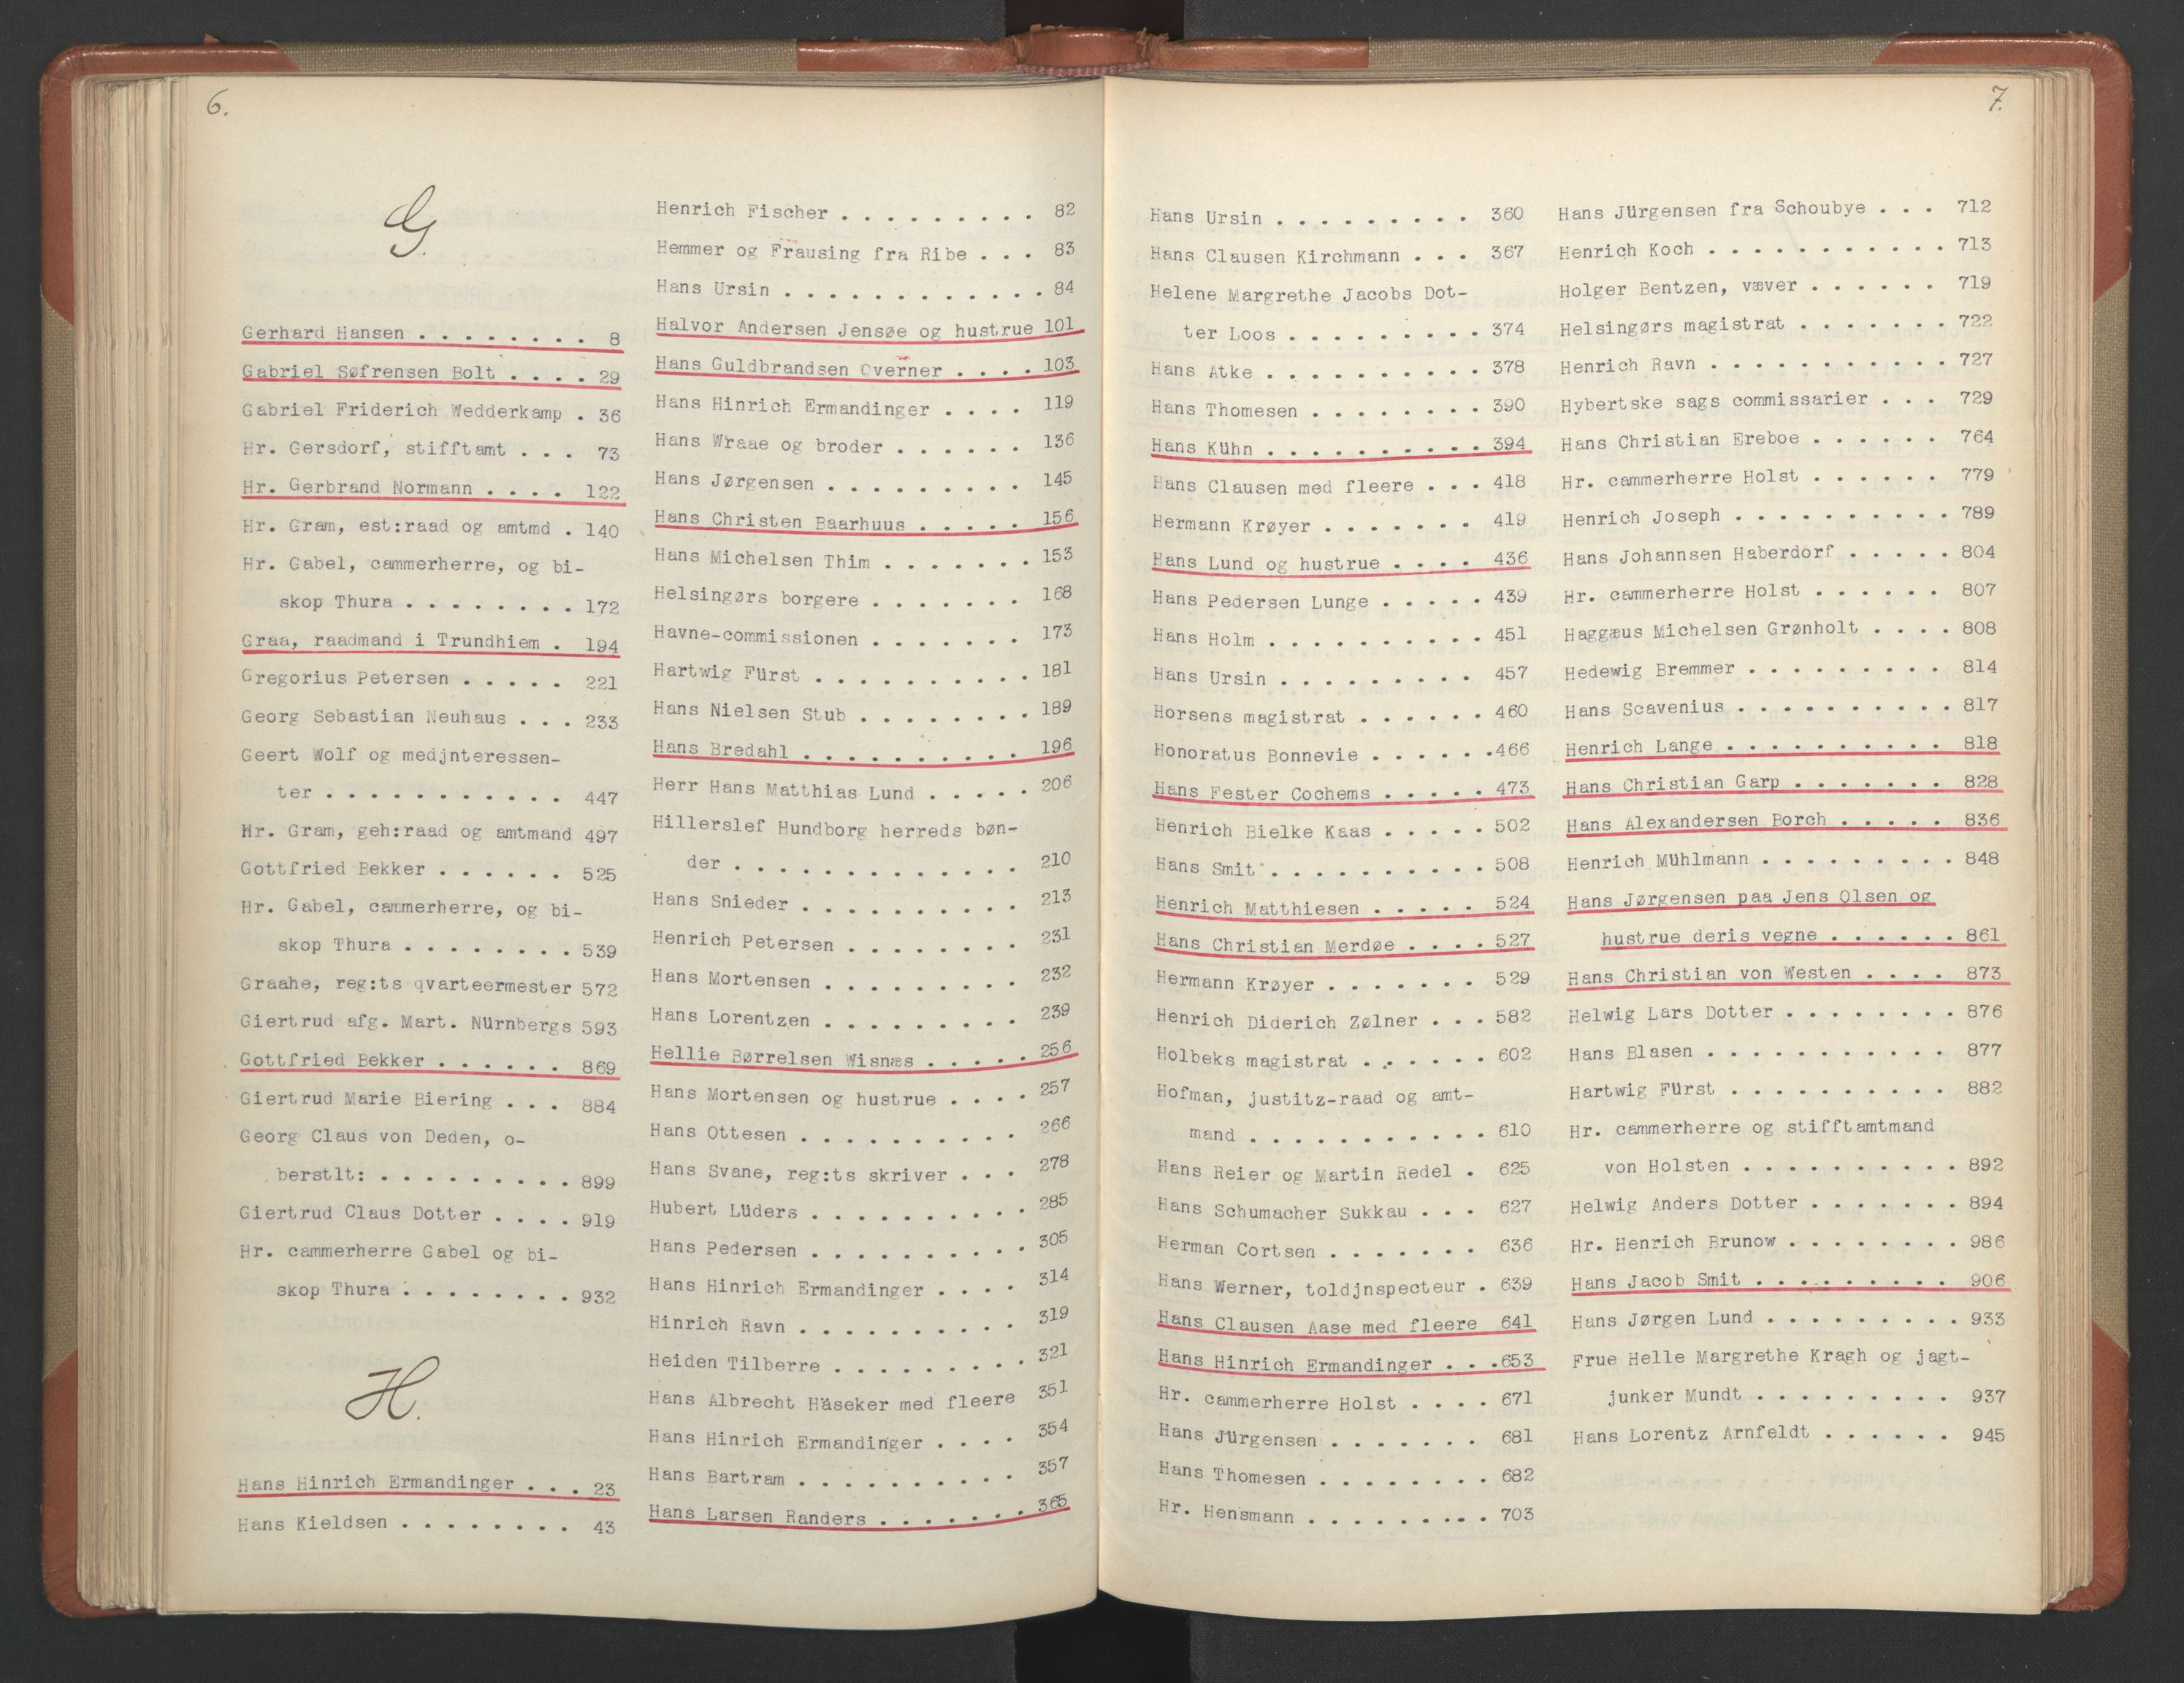 6.
G.
Gerhard Hansen . . . . . . . . 8
Gabriel Søfrensen Bolt . . . . 29
Gabriel Friderich Wedderkamp . 36
Hr. Gersdorf, stifftamt . . . 73
Hr. Gerbrand Normann . . . . 122
Hr. Gram, est:raad og amtmd . 140
Hr. Gabel, cammerherre, og bi-
skop Thura . . . . . . . . 172
Graa, raadmand i Trundhiem . 194
Gregorius Petersen . . . . . 221
Georg Sebastian Neuhaus . . . 233
Geert Wolf og medjnteressen-
ter . . . . . . . . . . . 447
Hr. Gram, geh:raad og amtmand 497
Gottfried Bekker . . . . . . 525
Hr. Gabel, cammerherre, og bi-
skop Thura . . . . . . . . 539
Graahe, reg:ts qvarteermester 572
Giertrud afg. Mart. Nürnbergs 593
Gottfried Bekker . . . . . . 869
Giertrud Marie Biering . . . 884
Georg Claus von Deden, o-
berstlt: . . . . . . . . . 899
Giertrud Claus Dotter . . . . 919
Hr. cammerherre Gabel og bi-
skop Thura . . . . . . . . 932
H.
Hans Hinrich Ermandinger . . . 23
Hans Kieldsen . . . . . . . . 43
Henrich Fischer . . . . . . . . . 82
Hemmer og Frausing fra Ribe . . . 83
Hans Ursin . . . . . . . . . . . . 84
Halvor Andersen Jensøe og hustrue 101
Hans Guldbrandsen Overner . . . . 103
Hans Hinrich Ermandinger . . . . 119
Hans Wraae og broder . . . . . . 136
Hans Jørgensen . . . . . . . . . 145
Hans Christen Baarhuus . . . . . 156
Hans Michelsen Thim . . . . . . . 153
Helsingørs borgere . . . . . . . 168
Havne-commissionen . . . . . . . 173
Hartwig Fürst . . . . . . . . . . 181
Hans Nielsen Stub . . . . . . . . 189
Hans Bredahl . . . . . . . . . . 196
Herr Hans Matthias Lund . . . . . 206
Hillerslef Hundborg herreds bøn-
der . . . . . . . . . . . . . 210
Hans Snieder . . . . . . . . . . 213
Henrich Petersen . . . . . . . . 231
Hans Mortensen . . . . . . . . . 232
Hans Lorentzen . . . . . . . . . 239
Hellie Børrelsen Wisnæs . . . . . 256
Hans Mortensen og hustrue . . . . 257
Hans Ottesen . . . . . . . . . . 266
Hans Svane, reg:ts skriver . . . 278
Hubert Lüders . . . . . . . . . . 285
Hans Pedersen . . . . . . . . . . 305
Hans Hinrich Ermandinger . . . . 314
Hinrich Ravn . . . . . . . . . . 319
Heiden Tilberre . . . . . . . . . 321
Hans Albrecht Häseker med fleere 351
Hans Hinrich Ermandinger . . . . 354
Hans Bartram . . . . . . . . . . 357
Hans Larsen Randers . . . . . . . 365
7.
Hans Ursin . . . . . . . . . 360
Hans Clausen Kirchmann . . . 367
Helene Margrethe Jacobs Dot-
ter Loos . . . . . . . . . 374
Hans Atke . . . . . . . . . . 378
Hans Thomesen . . . . . . . . 390
Hans Kühn . . . . . . . . . . 394
Hans Clausen med fleere . . . 418
Hermann Krøyer . . . . . . . 419
Hans Lund og hustrue . . . . 436
Hans Pedersen Lunge . . . . . 439
Hans Holm . . . . . . . . . . 451
Hans Ursin . . . . . . . . . 457
Horsens magistrat . . . . . . 460
Honoratus Bonnevie . . . . . .466
Hans Fester Cochems . . . . . 473
Henrich Bielke Kaas . . . . . 502
Hans Smit . . . . . . . . . . 508
Henrich Matthiesen . . . . . 524
Hans Christian Merdøe . . . . 527
Hermann Krøyer . . . . . . . 529
Henrich Diderich Zølner . . . 582
Holbeks magistrat . . . . . . 602
Hofman, justitz-raad og amt-
mand . . . . . . . . . . . 610
Hans Reier og Martin Redel . 625
Hans Schumacher Sukkau . . . 627
Herman Cortsen . . . . . . . 636
Hans Werner, toldjnspecteur . 639
Hans Clausen Aase med fleere 641
Hans Hinrich Ermandinger . . .653
Hr. cammerherre Holst . . . . 671
Hans Jürgensen . . . . . . . 681
Hans Thomesen . . . . . . . . 682
Hr. Hensmann . . . . . . . . . 703
Hans Jürgensen fra Schoubye . . . 712
Henrich Koch . . . . . . . . . . . 713
Holger Bentzen, væver . . . . . . 719
Helsingørs magistrat . . . . . . . 722
Henrich Ravn . . . . . . . . . . . 727
Hybertske sags commissarier . . . 729
Hans Christian Ereboe . . . . . . 764
Hr. cammerherre Holst . . . . . . 779
Henrich Joseph . . . . . . . . . . 789
Hans Johannsen Haberdorf . . . . . 804
Hr. cammerherre Holst . . . . . . 807
Haggæus Michelsen Grønholt . . . . 808
Hedewig Bremmer . . . . . . . . . 814
Hans Scavenius . . . . . . . . . . 817
Henrich Lange . . . . . . . . . . 818
Hans Christian Garp . . . . . . . 828
Hans Alexandersen Borch . . . . . 836
Henrich Mühlmann . . . . . . . . . 848
Hans Jørgensen paa Jens Olsen og
hustrue deris vegne . . . . . . 861
Hans Christian von Westen . . . . 873
Helwig Lars Dotter . . . . . . . . 876
Hans Blasen . . . . . . . . . . . 877
Hartwig Fürst . . . . . . . . . . 882
Hr. cammerherre og stifftamtmand
von Holsten . . . . . . . . . . 892
Helwig Anders Dotter . . . . . . . 894
Hr. Henrich Brunow . . . . . . . . 986
Hans Jacob Smit . . . . . . . . . 906
Hans Jørgen Lund . . . . . . . . . 933
Frue Helle Margrethe Kragh og jagt-
junker Mundt . . . . . . . . . 937
Hans Lorentz Arnfeldt . . . . . . 945